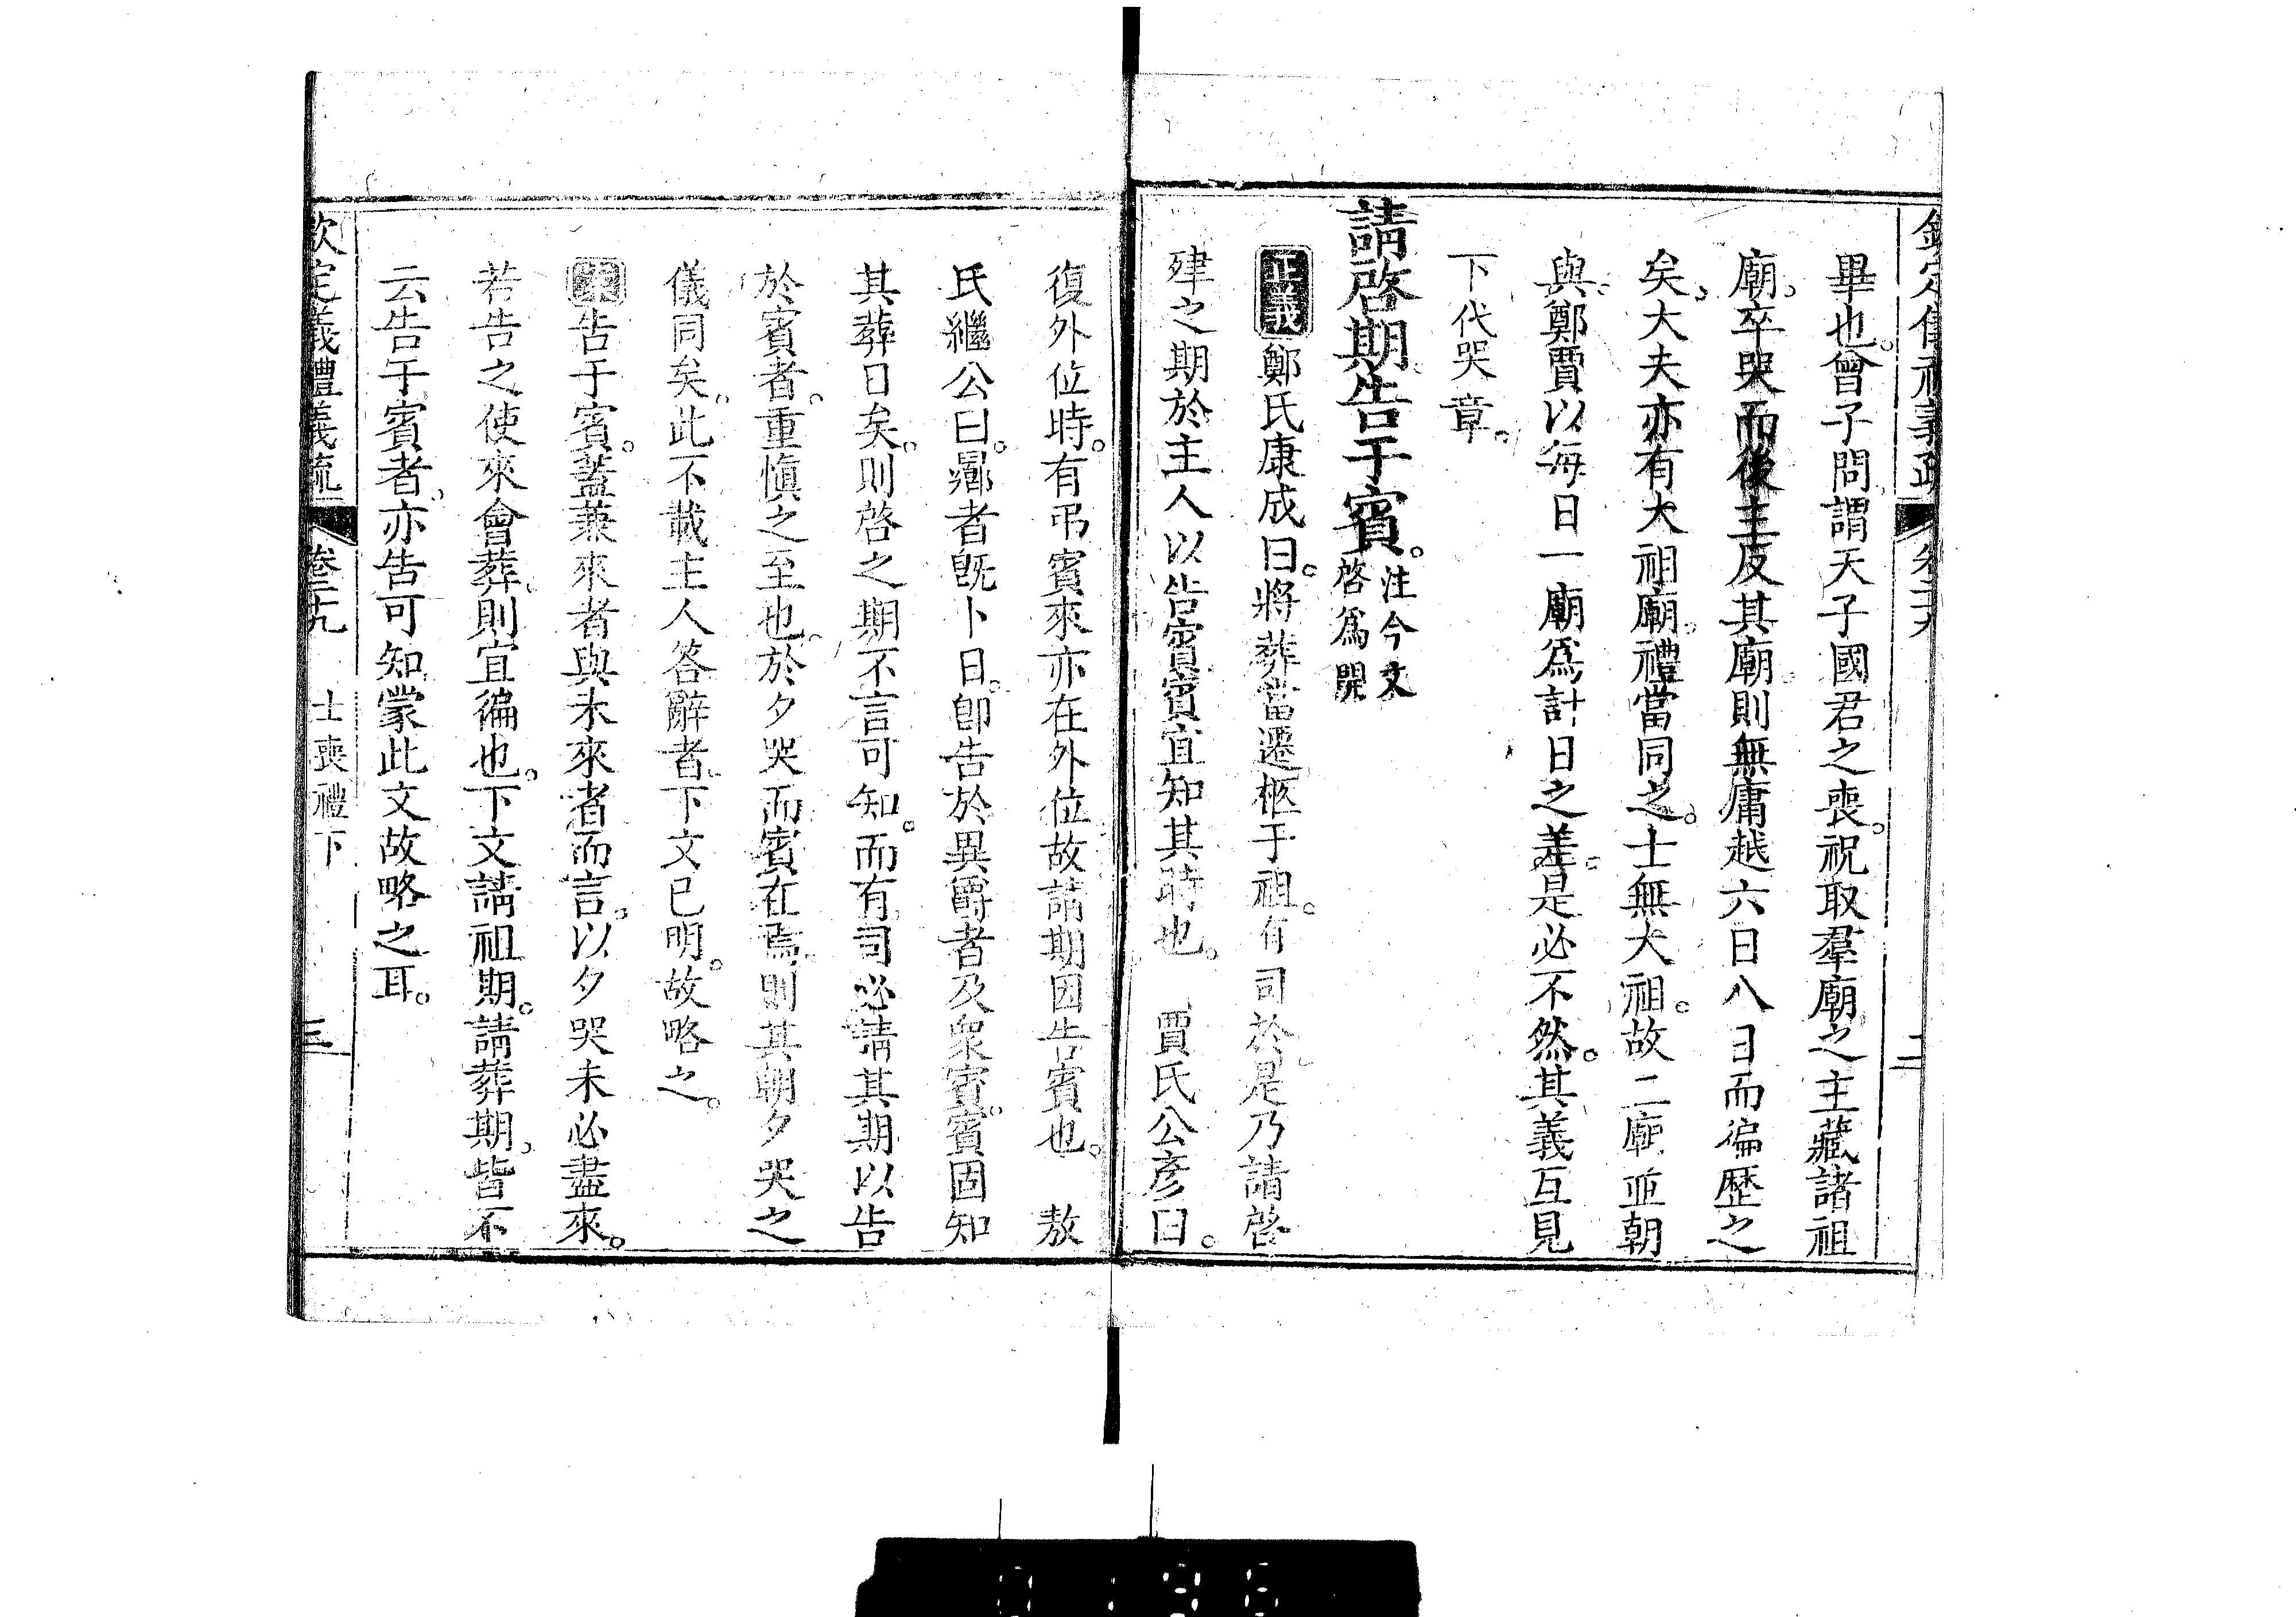 欽定儀禮義疏 卷二十九 二
畢也。曾子問謂天子國君之喪。祝取羣廟之主藏諸祖
廟。卒哭而後主反其廟。則無庸越六日八日而徧歷之
矣。大夫亦有大祖廟。禮當同之。士無大祖。故二廟並朝
與。鄭賈以每日一廟爲計日之差。是必不然。其義互見
下代哭章。
請啓期。告于賓。注今文啓爲開
正義 鄭氏康成曰。將葬當遷柩于祖。有司於是乃請啓
肂之期於主人以告賓。賓宜知其時也。 賈氏公彥曰。
復外位時。有弔賓來亦在外位。故請期因告賓也。 敖
氏繼公曰。曏者既卜日。卽告於異爵者及衆賓。賓固知
其葬日矣。則啓之期不言可知。而有司必請其期以告
於賓者。重愼之至也。於夕哭而賓在焉。則其朝夕哭之
儀同矣。此不載主人答辭者。下文已明。故略之。
案 告于賓。蓋兼來者與未來者而言。以夕哭未必盡來。
若告之使來會葬。則宜徧也。下文請祖期。請葬期。皆不
云告于賓者。亦告可知。蒙此文故略之耳。
欽定義禮義疏 卷二十九 士喪禮下 三